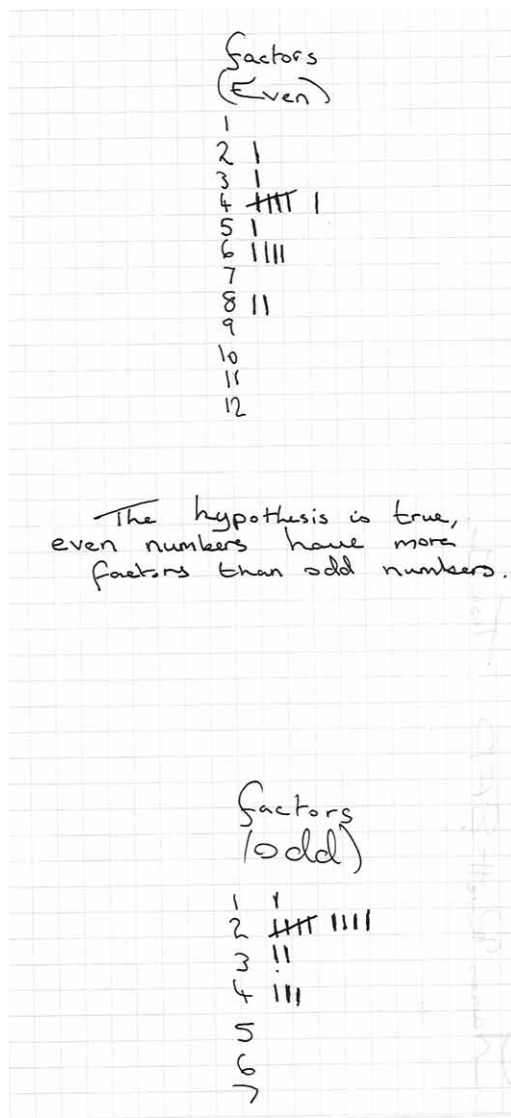 factors
(Even)
1
2 |
3 |
4 |||| |
5 |
6 ||||
7
8 ||
9
10
11
12
The hypothesis is true,
even numbers have more
factors than odd numbers.
factors
(odd)
1 |
2 |||| ||||
3 ||
4 |||
5
6
7